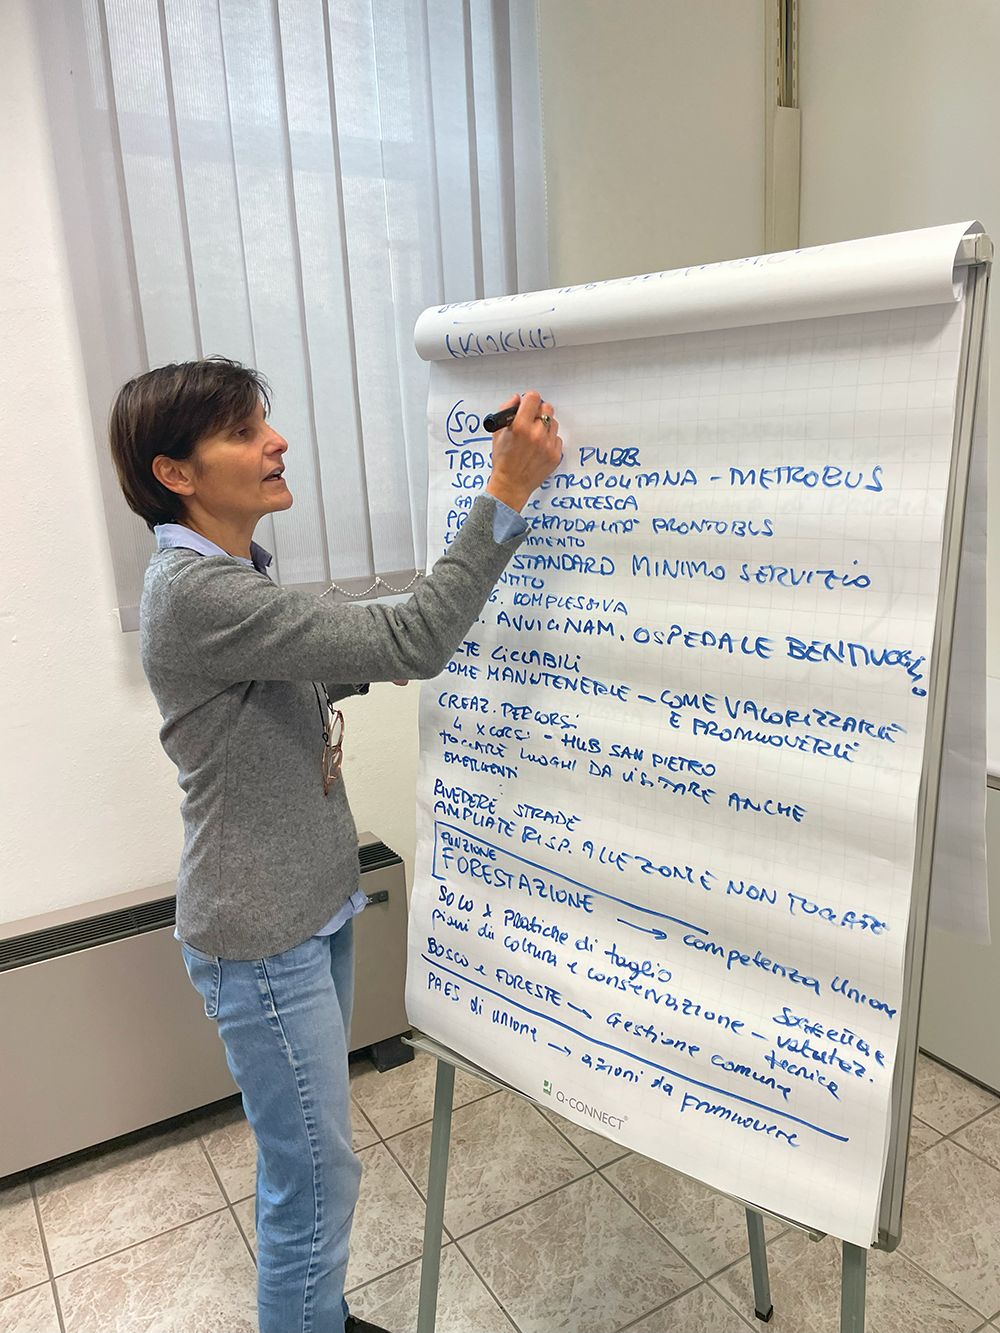 (SO
TRAS PUBB
SCA METROPOLITANA - METROBUS
GA E CENTESCA
PR INTERMODALITÀ PRONTOBUS
E MENTO
STANDARD MINIMO SERVIZIO
NTITO
G. COMPLESSIVA
. AVVICINAM. OSPEDALE BENTIVOGLIO
TE CICLABILI
COME MANUTENERLE - COME VALORIZZARLE
E PROMUOVERLE
CREAZ. PERCORSI
4 X CORSI - HUB SAN PIETRO
TOCCARE LUOGHI DA VISITARE ANCHE
EMERGENTI
RIVEDERE STRADE
AMPLIATE RISP. ALLE ZONE NON TOCCATE
FUNZIONE
FORESTAZIONE → competenza Unione
SOLO x pratiche di taglio
piani di coltura e conservazione - valutaz.
tecnica
BOSCO e FORESTE → Gestione comune
PAES di unione → azioni da promuovere
Q-CONNECT®